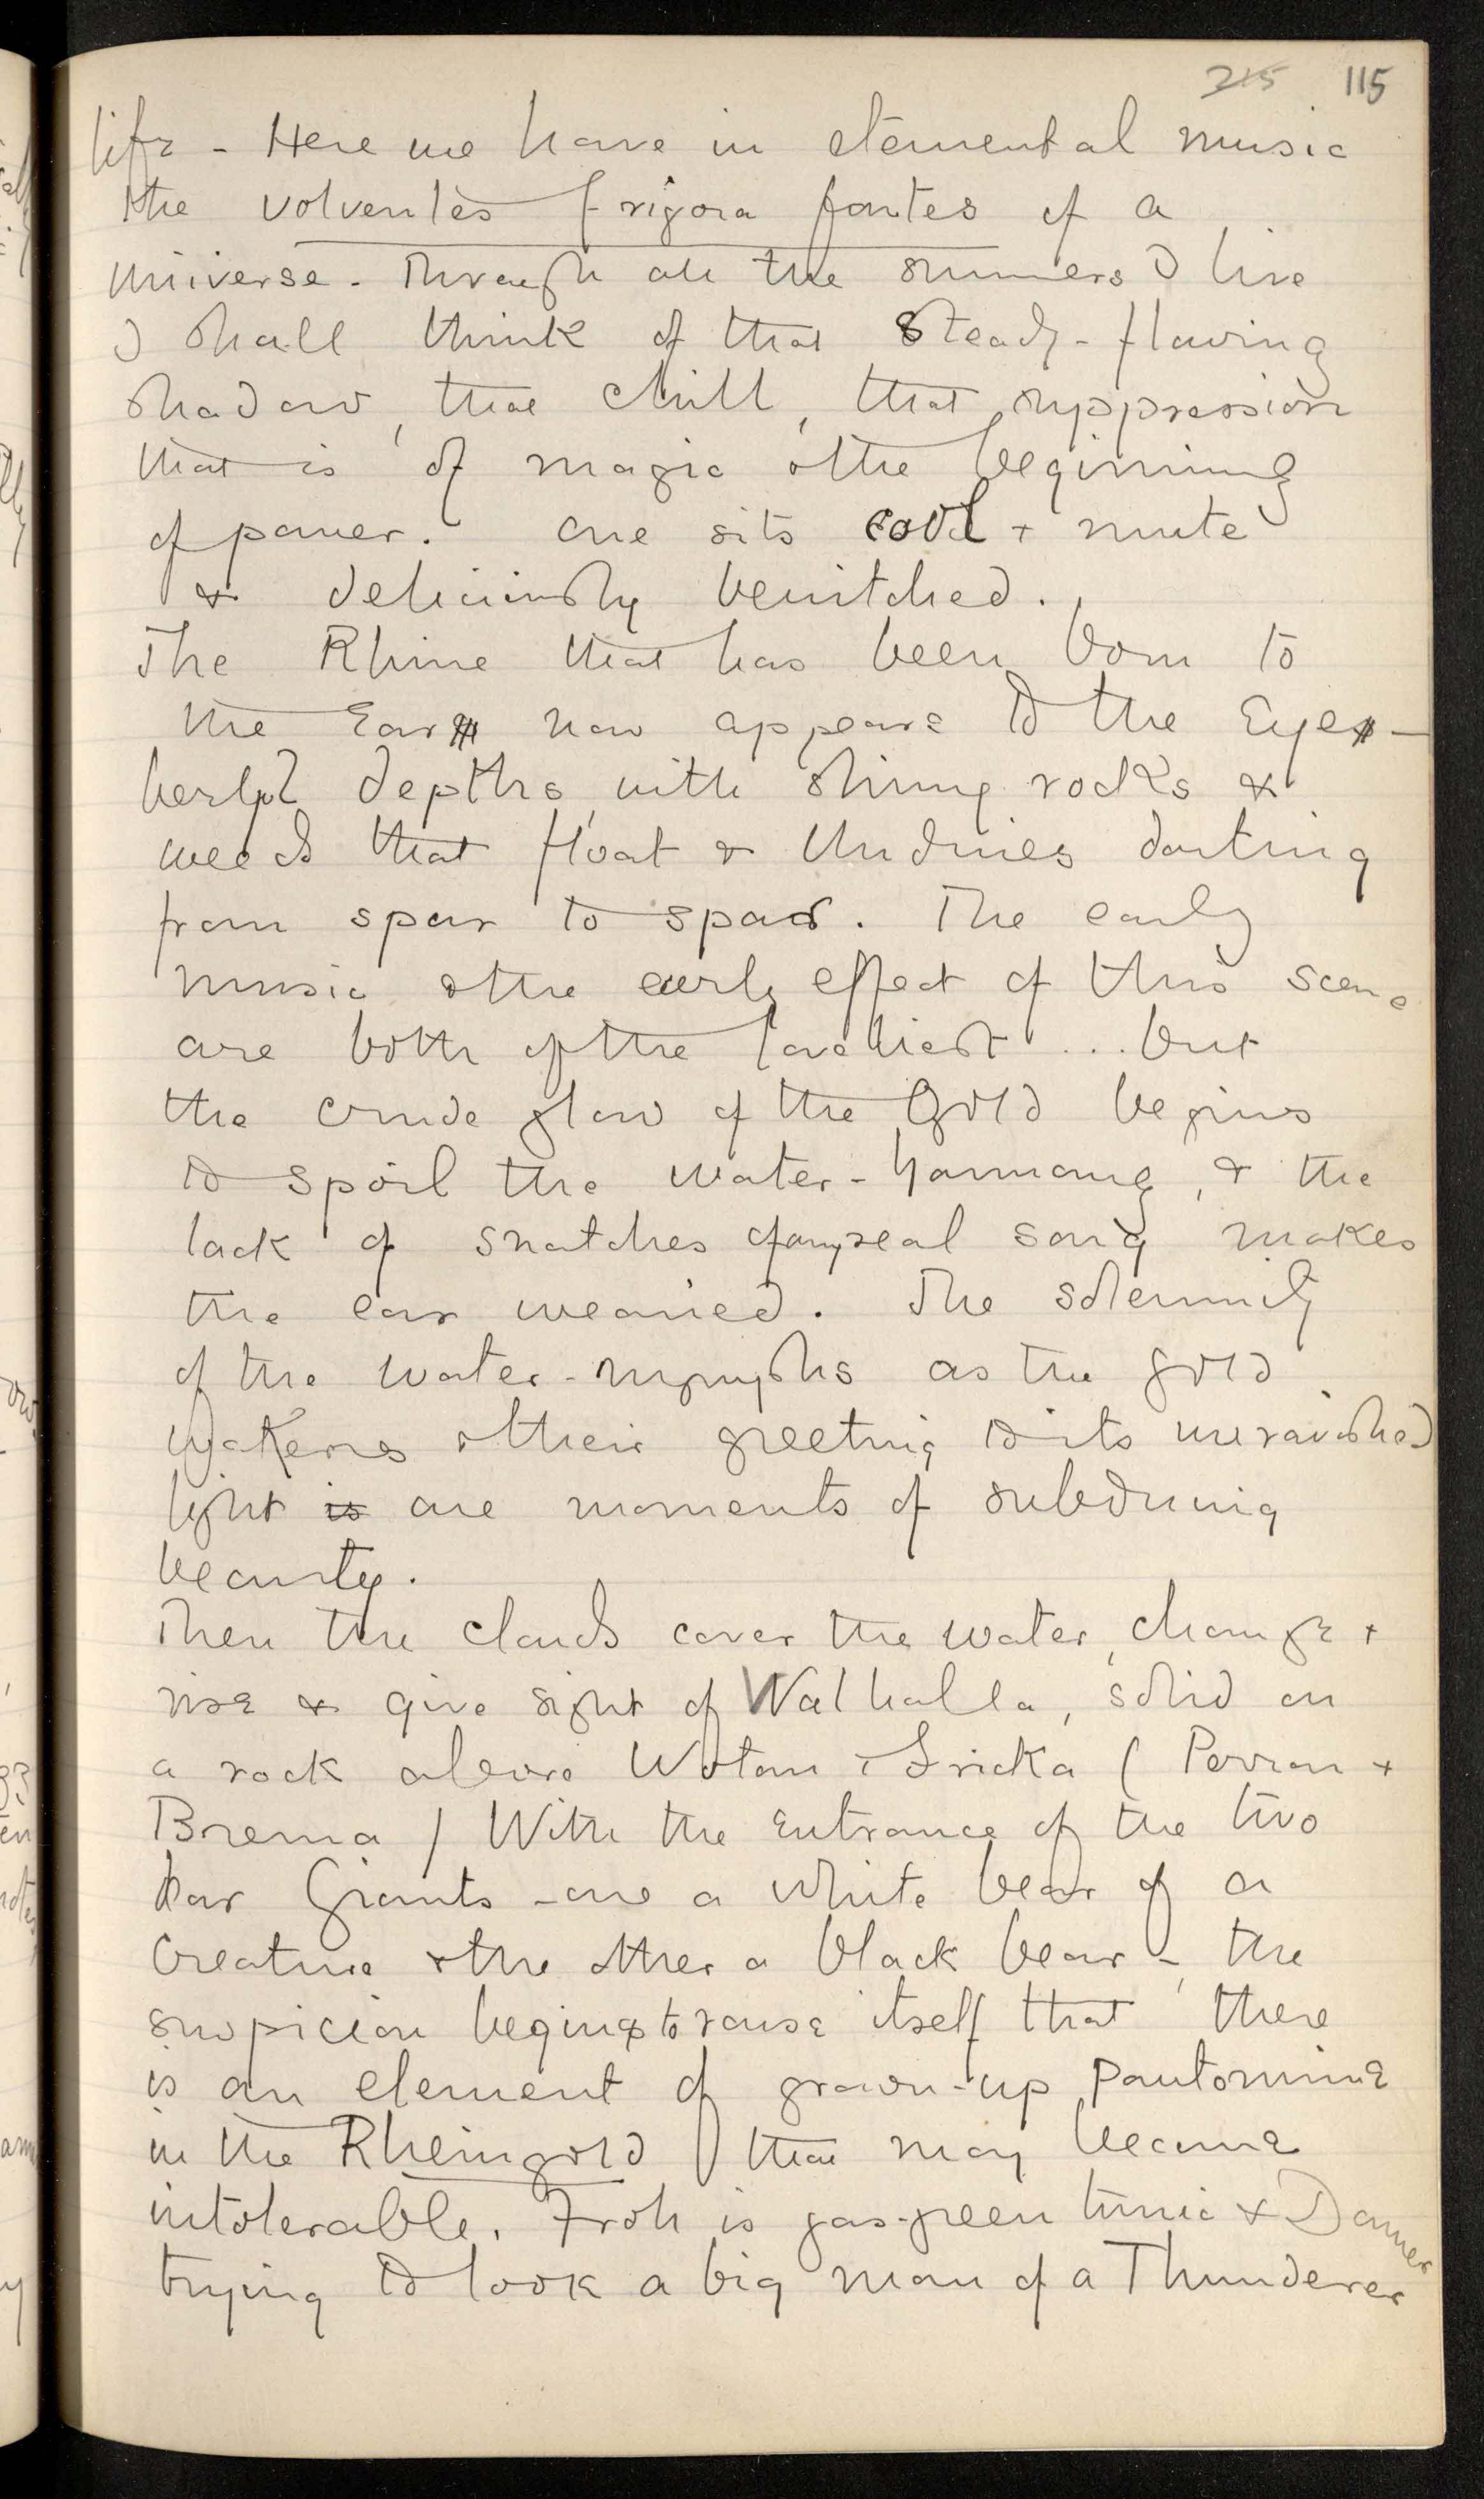 215 115
life - Here we have in elemental music
the volventes frigora fontes of a
universe. Through all the summers I live
I shall think of that steady-flowing
shadow, that chill, that suppression
that is of magic & the beginning
of power. One sits cool & mute
& deliciously bewitched.
The Rhine that has been born to
the Ear now appears to the Eye -
depths, with shiny rocks &
weeds that float & Undines darting
from spar to spar. The early
music & the early effect of this scene
are both of the loveliest ... but
the crude glow of the Gold begins
to spoil the water-harmony, & the
lack of snatches of any real song makes
the ear wearied. The solemnity
of the water-nymphs as the gold
wakens & their greeting to its unravished
light is are moments of subduing
beauty.
Then the clouds cover the water, change &
rise & give sight of Walhalla, solid on
a rock above Wotan & Fricka (Perron &
Brema) With the entrance of the two
Giants - one a white bear of a
creature & the other a black bear - the
suspicion begins to rouse itself that there
is an element of grown-up pantomime
in the Rheingold that may become
intolerable. Froh is gas-green tunic & Donner
trying to look a big man of a Thunderer